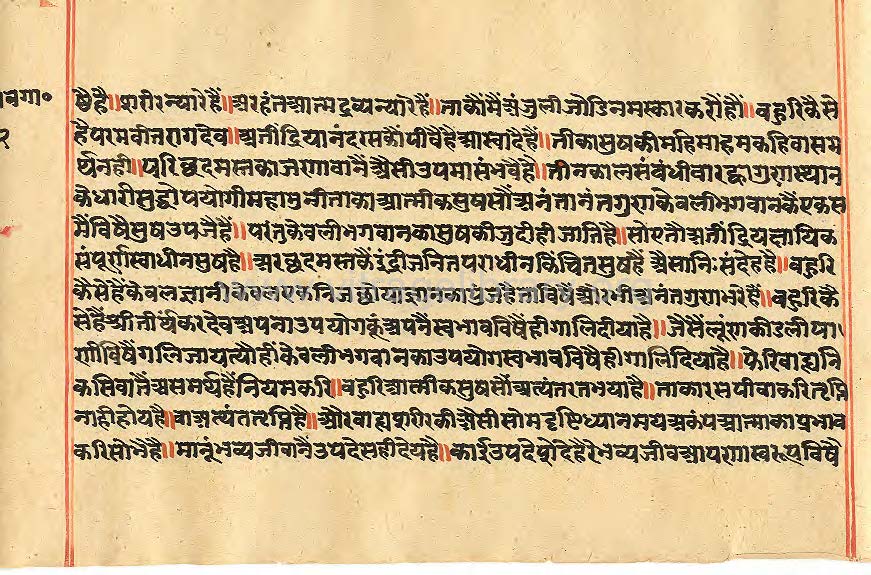 षैहै॥शरीरन्यारेहैं॥अरहंतआत्मद्रव्यन्यारेहैं॥ताकौंमैंअंजुलीजोडिनमस्कारकरौंहौं॥बहुरिकैसे
हैपरमवीतरागदेव॥अतींद्रियानंदरसकौंपीवैहैआस्वादैहैं॥तीकासुषकीमहिमाहमकहिवासम
र्थनही॥परिछदमस्तकाजाणवानैंअैसीउपमासंभवैहै॥तीनकालसंबंधीबारह्वांगुणस्थान
केधारीसुद्धोपयोगीमहामुनीताकाआत्मीकसुषसौंअनंतानंतगुणाकेवलीभगवानकैंएकस
मैंविषैसुषउपजैहैं॥परंतुकेवलीभगवानकासुषकीजुदीहीजातिहै॥सोएतोअतींद्रियक्षायिक
संपूर्णस्वाधीनसुषहै॥अरछदमस्तकैंइंद्रीजनितपराधीनकिंचितसुषहै अैसानिःसंदेहहै॥बहुरि
कैसेहैंकेवलज्ञानीकेवलएकनिजस्वभाव
अनंतगुणभरेहैं॥बहुरिकै
सेहैंश्रीतीर्थंकरदेवअपनाउपयोगकूंअपनैंस्वभावविषैंहीगालिदीयाहै॥जैसैंलूंणकीडलीपा
णीविषैंगलिजायत्यौंहींकेवलीभगवानकाउपयोगस्वभावविषैंहीगालिदियाहै॥फेरिबाह्यनि
कसिवानैंअसमर्थहैंनियमकरि॥बहुरिआत्मीकसुषसौंअत्यंतरतभयाहै॥ताकारसपीवाकरितृप्ति
नाहीहोयहै॥वाअत्यंततृप्तिहै॥औरवाह्यशरीरकीअैसीसोमदृष्टिध्यानमयअकंपआत्माकाप्रभाव
करिसोभैहै॥मानूंभव्यजीवांनैंउपदेसहीदेयहै॥कांईउपदेशदेहैरेभव्यजीवआपणास्वरूपविषै